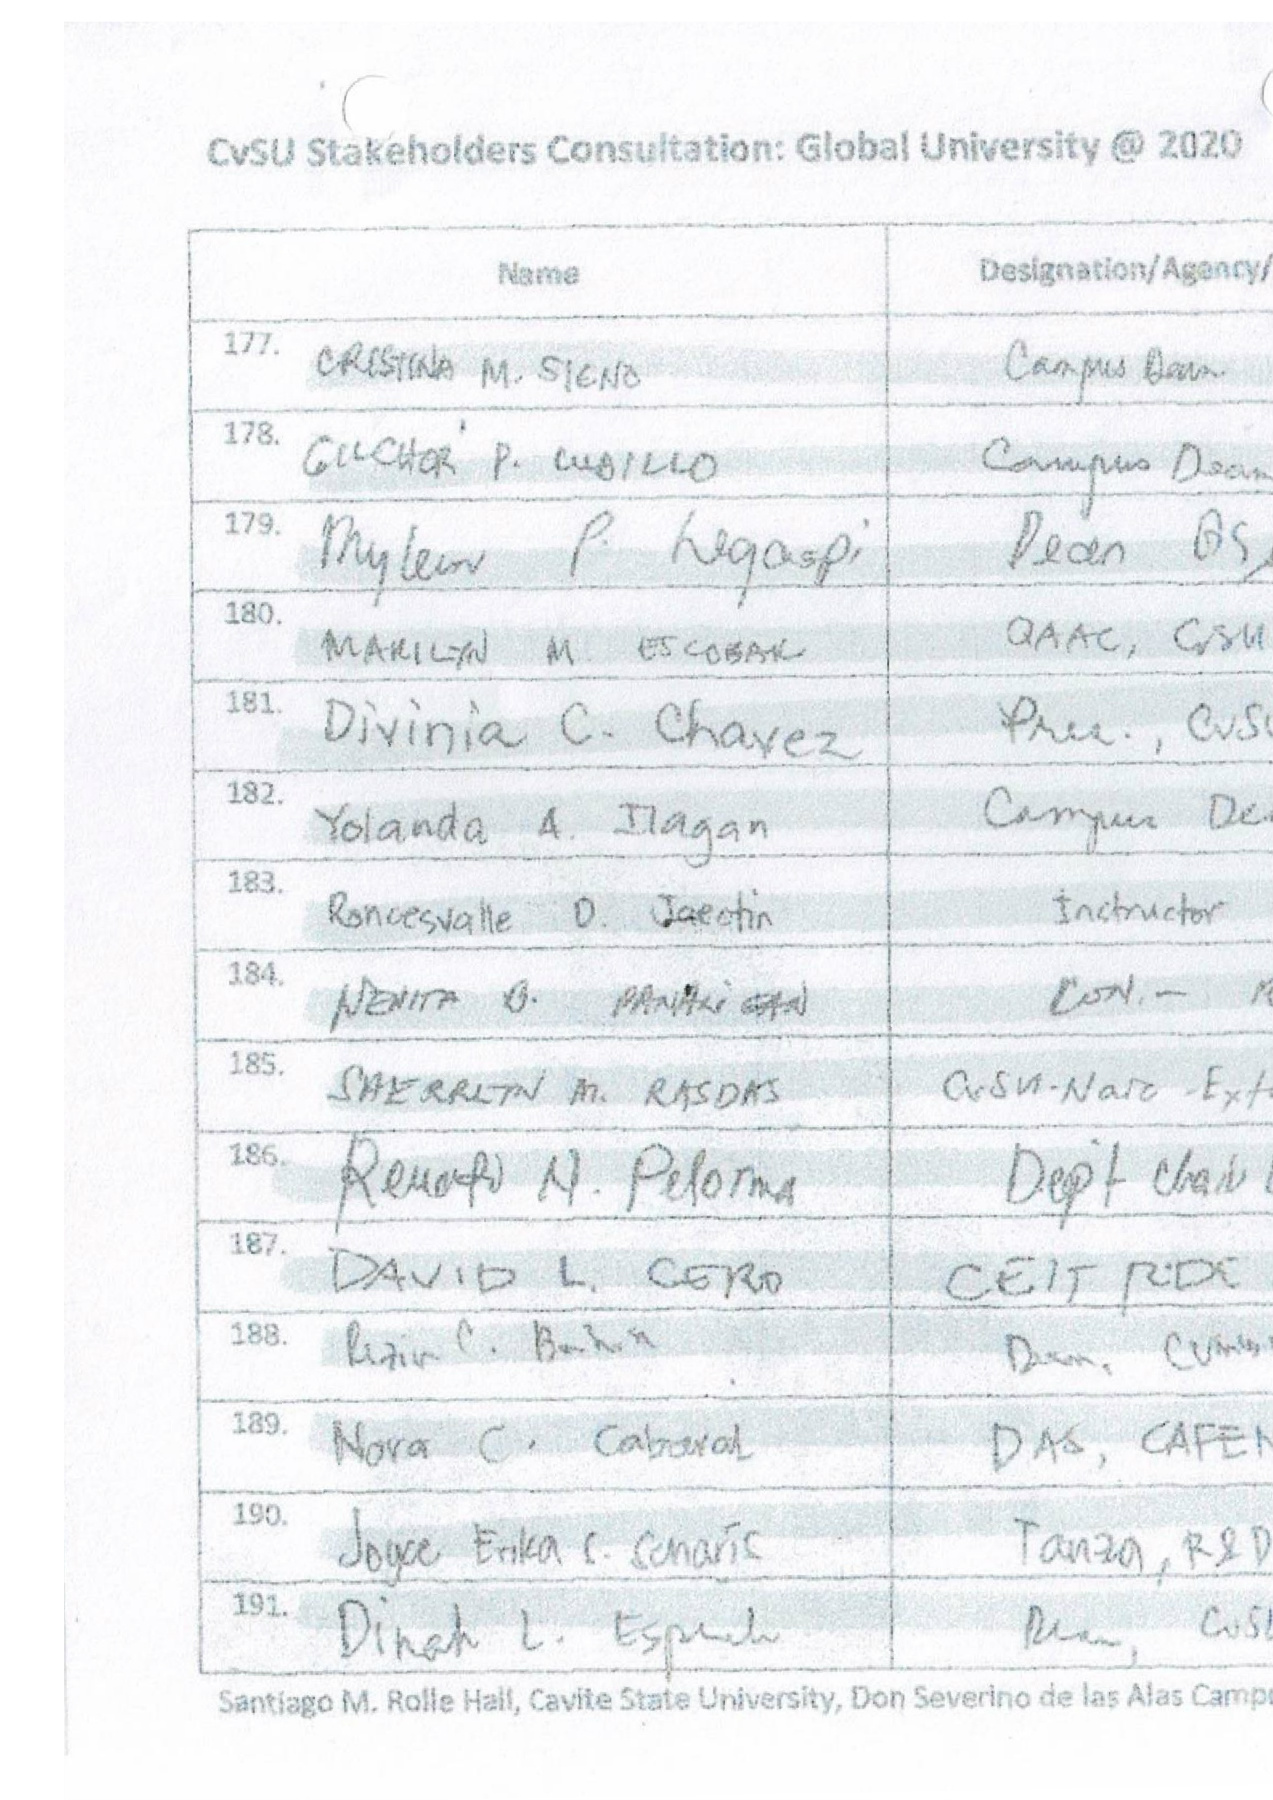 CvSU Stakeholders Consultation: Global University @ 2020
Name Designation/Agency/
177. CRISTINA M. SIENO Campus Dean
178. GILCHOR P. CUBILLO Campus Dean
179. Mylene P. Legaspi Dean GS,
180. MARILYN M. ESCOBAR QAAC, CvSU
181. Divinia C. Chavez Pres., CvSU
182. Yolanda A. Ilagan Campus Dea
183. Roncesvalle D. Instructor
184. NENITA B. PANALIGAN CON.-
185. SHERRLYN M. RASDAS CvSU-Naic -Exte
186. Renato N. Pelorma Dept Chair
187. DAVID L. CERO CEIT RDE
188. C.
189. Nova C. Cabaral DAS, CAFEN
190. Joyce Erika S. Senaris Tanza, R&D
191. Dinah L. Dean, CvSU
Santiago M. Rolle Hall, Cavite State University, Don Severino de las Alas Campu